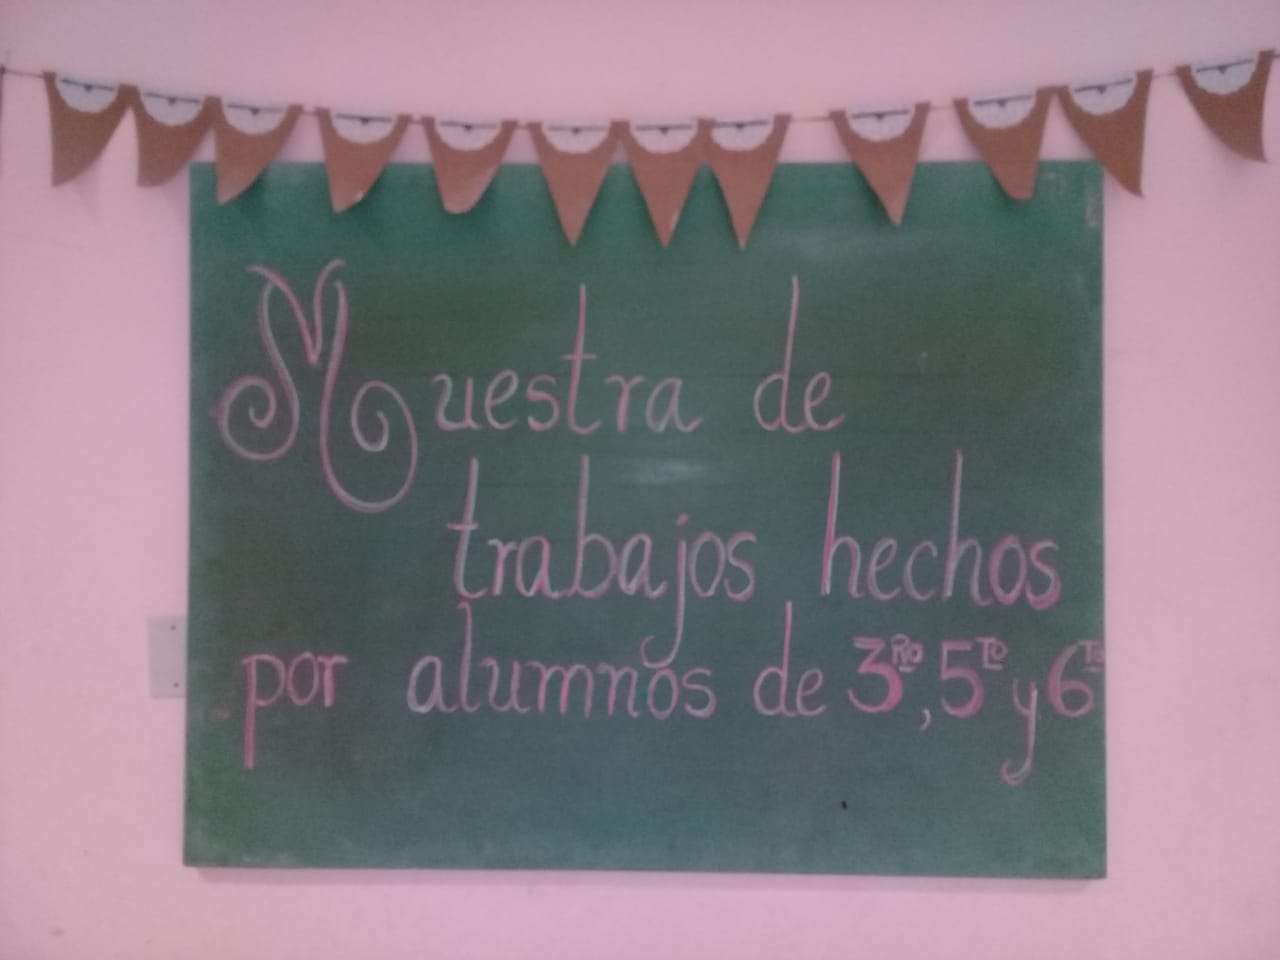 Muestra de
trabajos hechos
por alumnos de 3ᴿᴼ, 5ᵀᴼ y 6ᵀᴼ